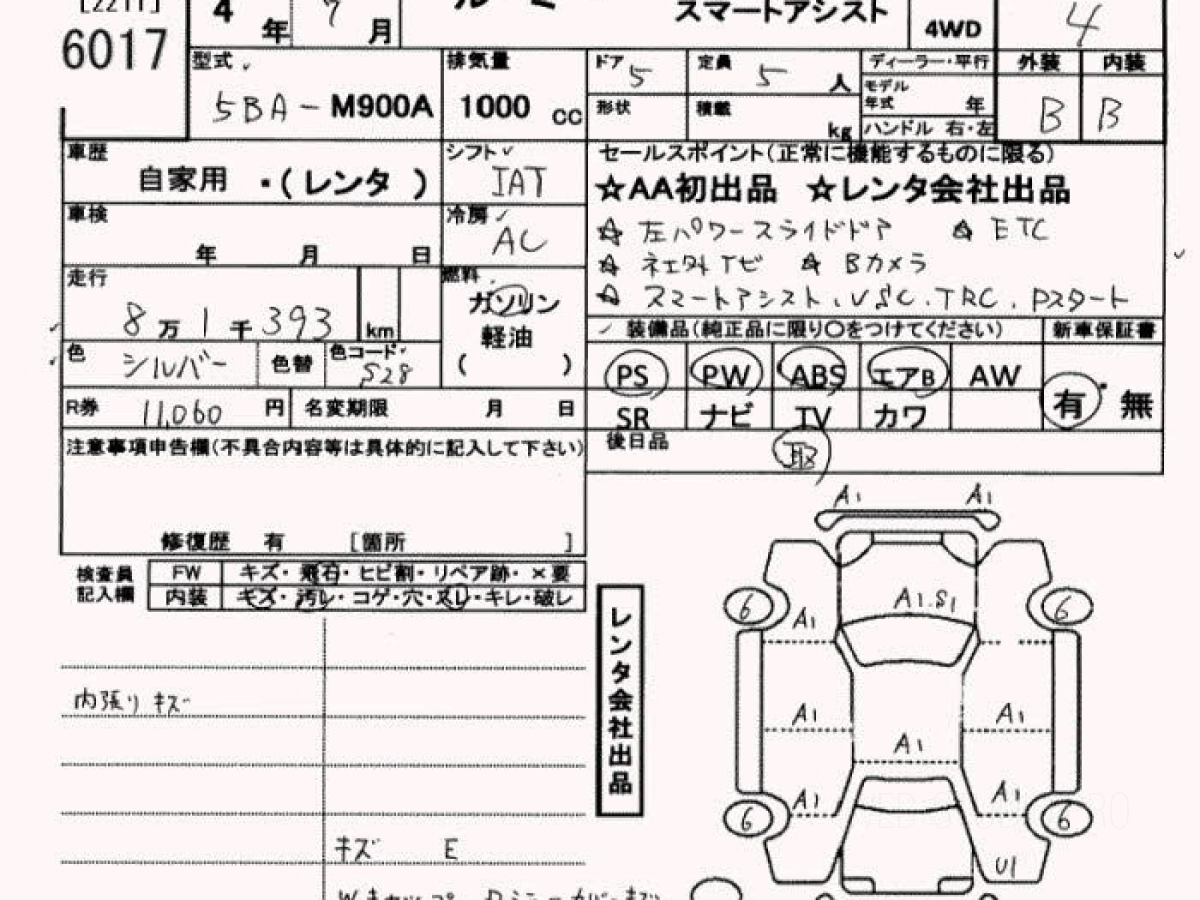 6017
4年 7月
スマートアシスト
4WD
4
型式
5BA-M900A
排気量
1000 cc
ドア 5
定員 5 人
形状
積載 kg
ディーラー・平行
モデル年式 年
ハンドル 右・左
外装 内装
B B
車歴
自家用 ・(レンタ )
シフト
IAT
セールスポイント(正常に機能するものに限る)
☆AA初出品 ☆レンタ会社出品
☆ 左パワースライドドア ☆ ETC
☆ 社外TV ☆ Bカメラ
☆ スマートアシスト.VSC.TRC.Pスタート
車検
年 月 日
冷房
AC
走行
8万1千393 km
燃料
ガソリン
軽油
( )
色 シルバー
色替
色コード S28
装備品(純正品に限り○をつけてください)
新車保証書
PS PW ABS エアB AW
SR ナビ TV カワ
有 無
R券 11,060 円
名変期限 月 日
後日品
取
注意事項申告欄(不具合内容等は具体的に記入して下さい)
修復歴 有 [箇所 ]
検査員記入欄
FW キズ・飛石・ヒビ割・リペア跡・×要
内装 キズ・汚レ・コゲ・穴・スレ・キレ・破レ
内張り キズ
キズ E
レンタ会社出品
A1 A1
6 6
A1.S1
A1
A1 A1
A1
A1 A1
6 6
U1